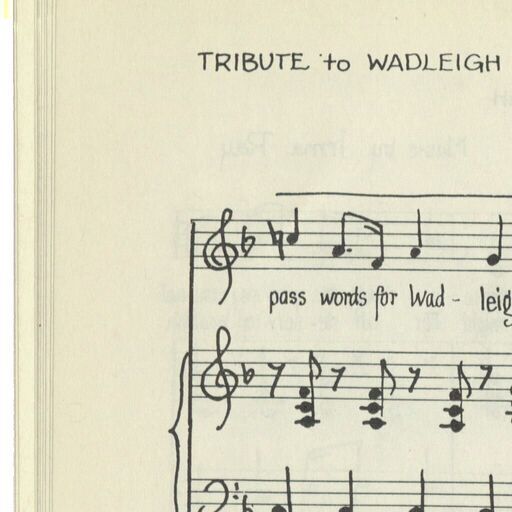 TRIBUTE to WADLEIGH
pass words for Wad - leig